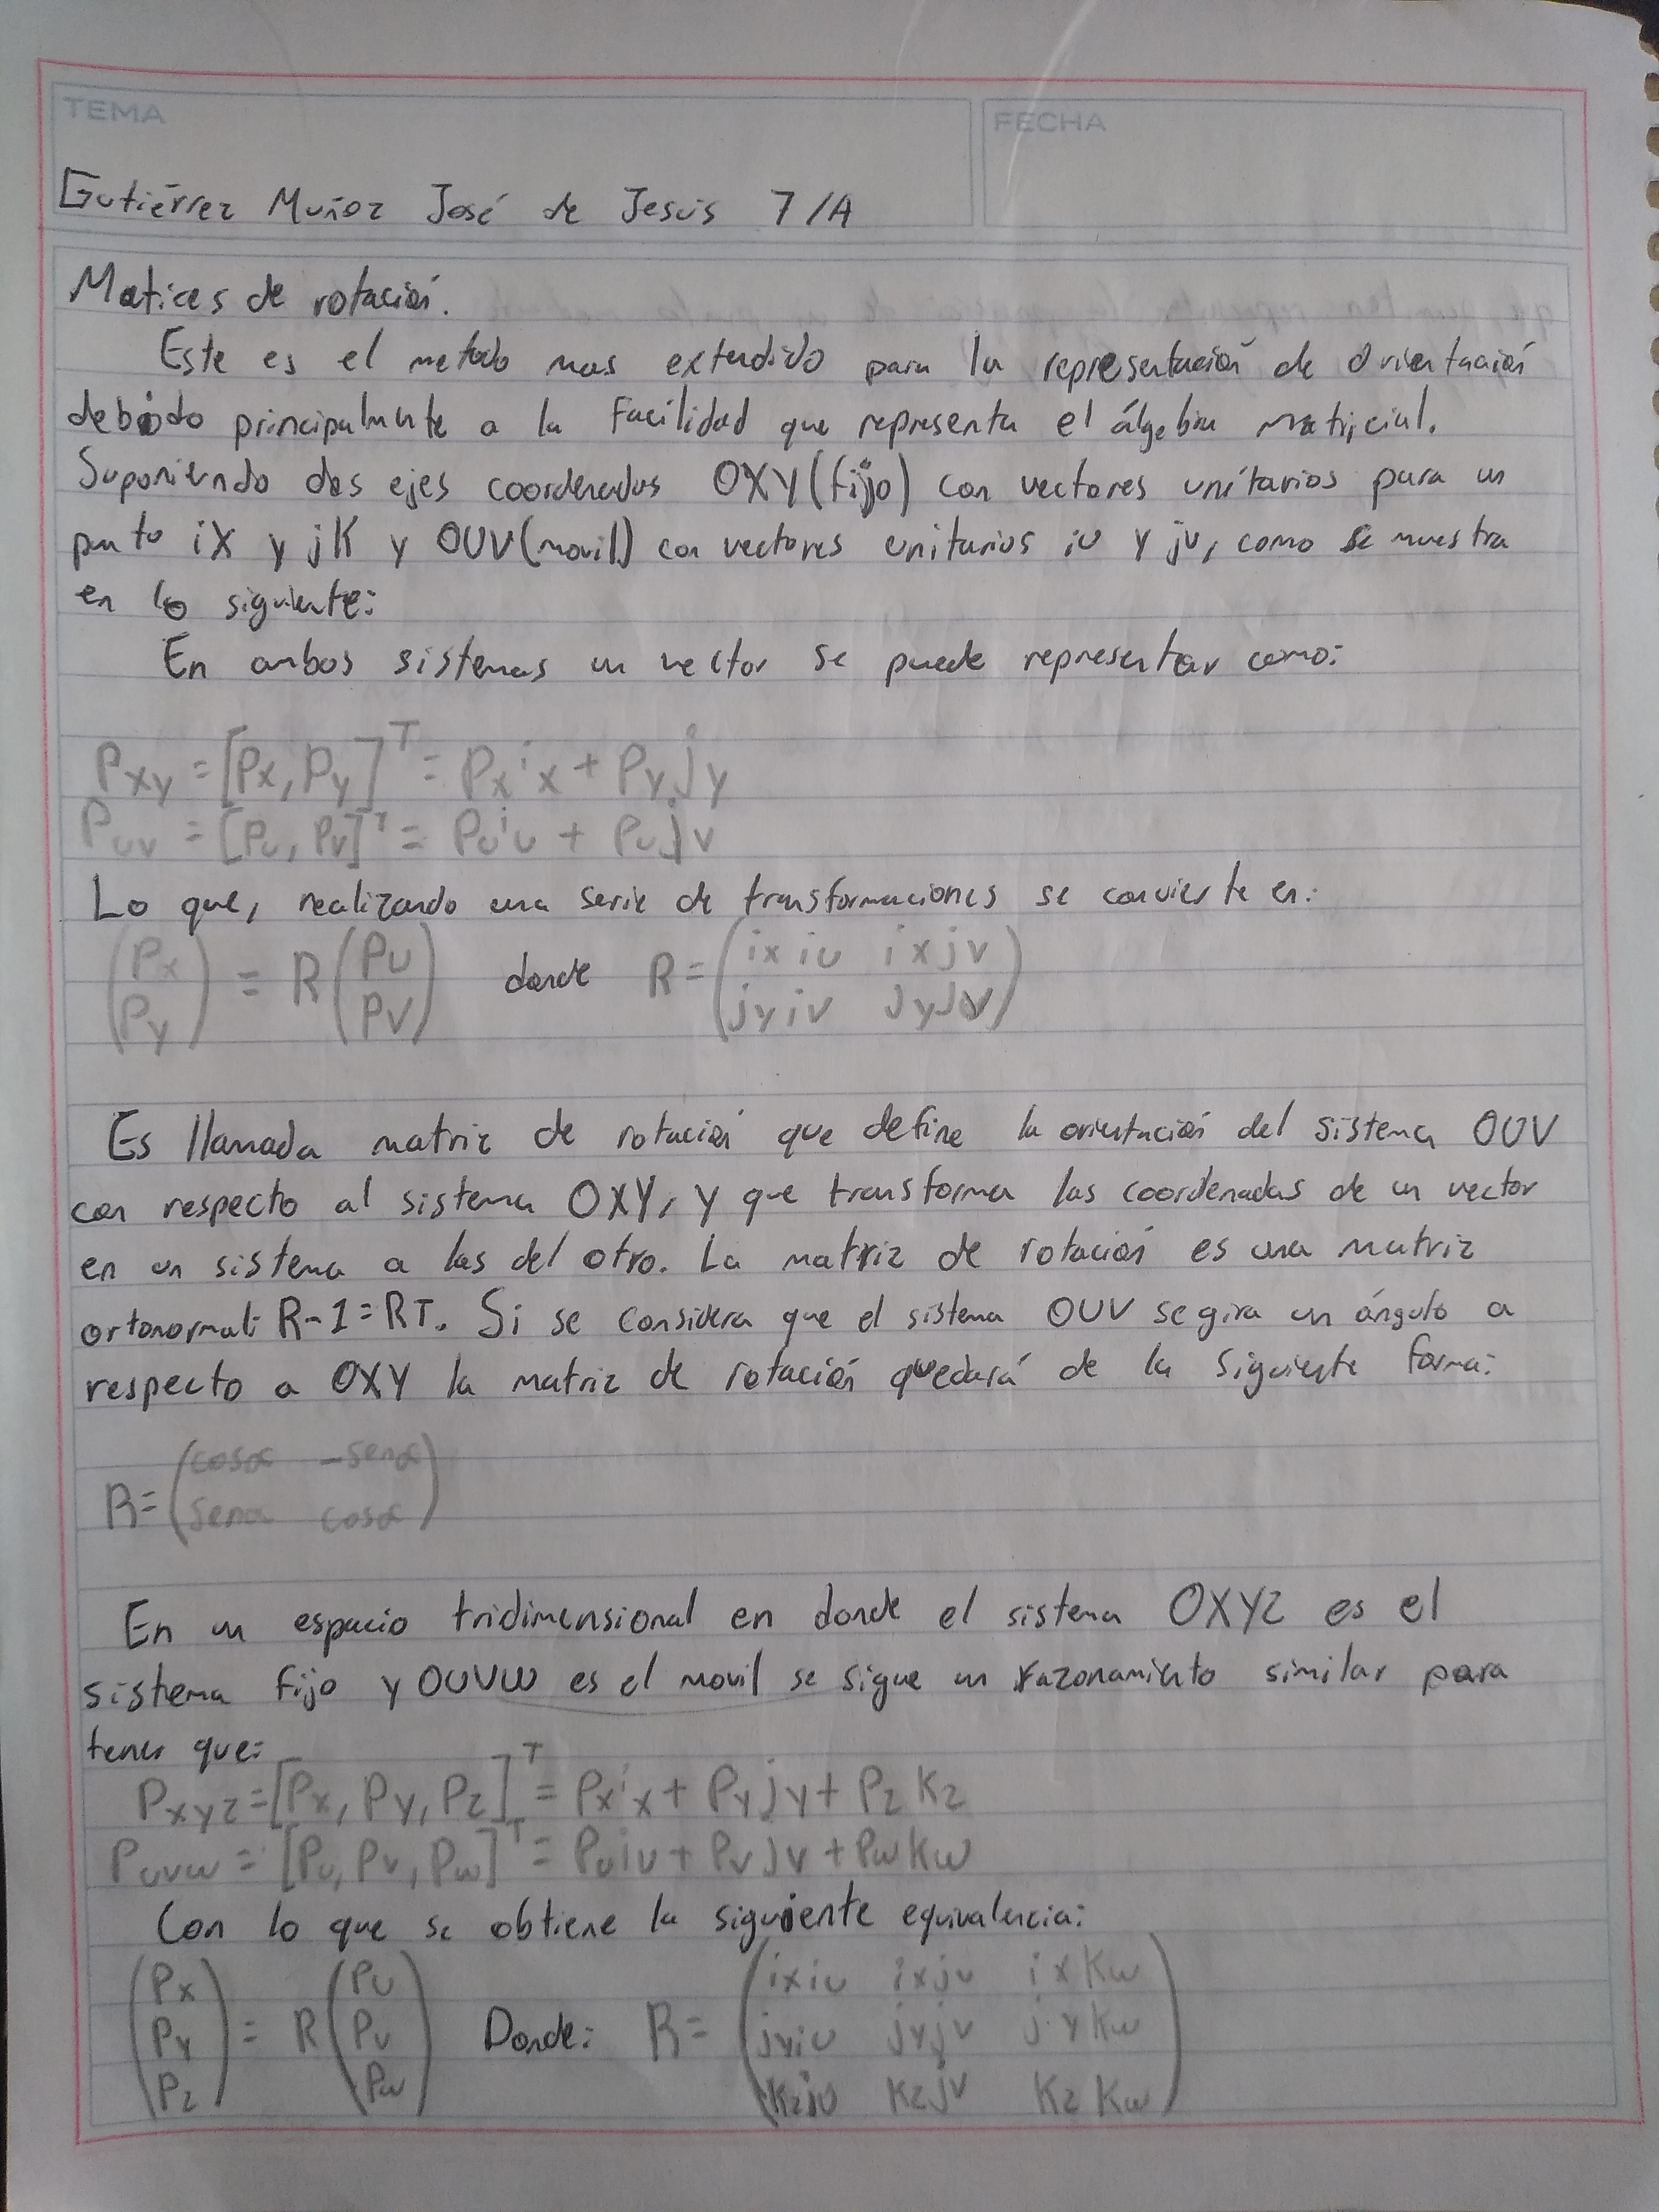 TEMA
FECHA
Gutiérrez Muñoz José de Jesús 7/A
Matices de rotación.
Este es el metodo mas extendido para la representación de orientación
debido principalmente a la Facilidad que representa el álgebra matricial.
Suponiendo dos ejes coordenados OXY(fijo) con vectores unitarios para un
punto iX y jK y OUV(movil) con vectores unitarios iu y jv, como se muestra
en lo siguiente:
En ambos sistemas un vector se puede representar como:
Pxy = [Px, Py]^T = Px ix + Py jy
Puv = [Pu, Pv]^T = Pu iu + Pu jv
Lo que, realizando una serie de transformaciones se convierte en:
(Px Py) = R (PU PV) donde R = (ix iu ixjv
jyiv jyjv)
Es llamada matriz de rotación que define la orientación del sistema OUV
con respecto al sistema OXY, y que transforma las coordenadas de un vector
en un sistema a las del otro. La matriz de rotación es una matriz
ortonormal: R-1=RT. Si se considera que el sistema OUV se gira un ángulo a
respecto a OXY la matriz de rotación quedará de la siguiente forma:
R= (cosα -senα
senα cosα)
En un espacio tridimensional en donde el sistema OXYZ es el
sistema fijo y OUVW es el movil se sigue un razonamiento similar para
tener que:
Pxyz = [Px, Py, Pz]^T = Px ix + Py jy + Pz kz
Puvw = [Pu, Pv, Pw]^T = Pu iu + Pv jv + Pw kw
Con lo que se obtiene la siguiente equivalencia:
(Px Py Pz) = R (PU Pu Pw) Donde: R = (ixiu ixju ixkw
jyiu jyjv jykw
kzju kzjv kzkw)